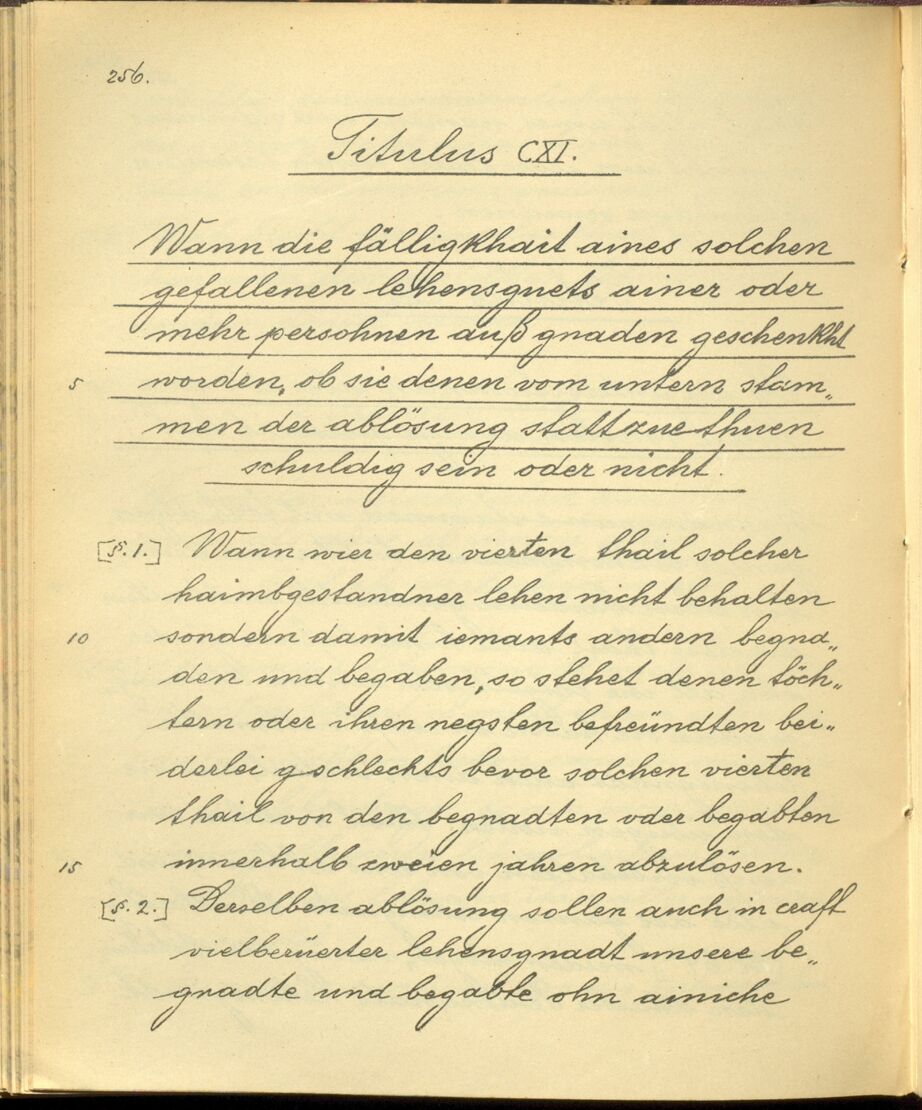 256.
Titulus CXI.
Wann die fälligkhait aines solchen
gefallenen lehensguets ainer oder
mehr persohnen auß gnaden geschenkht
5 worden, ob sie denen vom untern stam„
men der ablösung statt zue thuen
schuldig sein oder nicht.
[§. 1.] Wann wier den vierten thail solcher
haimbgestandner lehen nicht behalten
10 sondern damit iemants andern begna„
den und begaben, so stehet denen töch„
tern oder ihren negsten befreündten bei„
derlei gschlechts bevor solchen vierten
thail von den begnadten oder begabten
15 innerhalb zweien jahren abzulösen.
[§. 2.] Derselben ablösung sollen auch in craft
vielberüerter lehensgnadt unsere be„
gnadte und begabte ohn ainiche